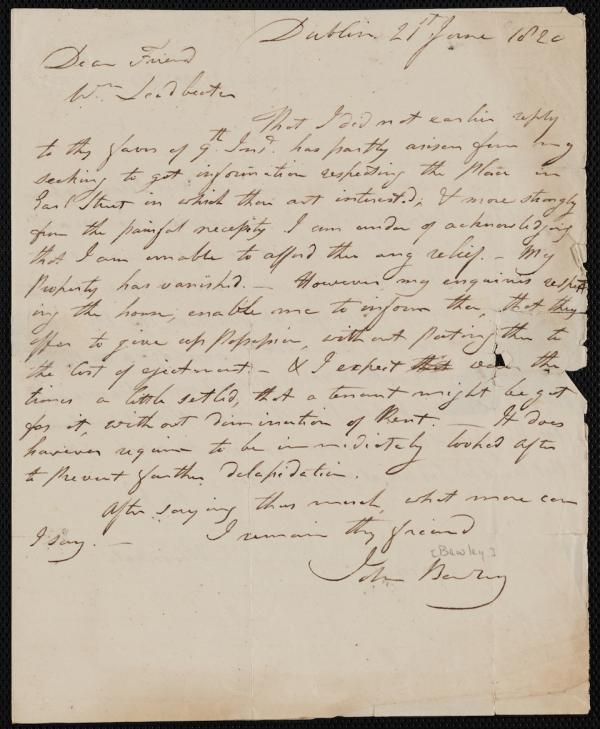 Dublin 21st June 1820
Dear Friend
Wm Leadbeater
That I did not earlier reply
to thy favor of 9th Inst. has partly arisen from my
seeking to get information respecting the Place in
Earl Street in which thou art interested; & more strongly
from the painful necessity I am under of acknowledging
that I am unable to afford thee any relief. – My
Property has vanished. – However my enquiries respect
ing the house, enable me to inform thee, that they
offer to give up Possession, without putting thee to
the Cost of ejectment – & I expect that were the
times a little settled, that a tenant might be got
for it, without diminution of Rent. – It does
however require to be immediately looked after
to prevent farther delapidation.
After saying thus much, what more can
I say. – I remain thy friend
[Bewley]
John Bewley